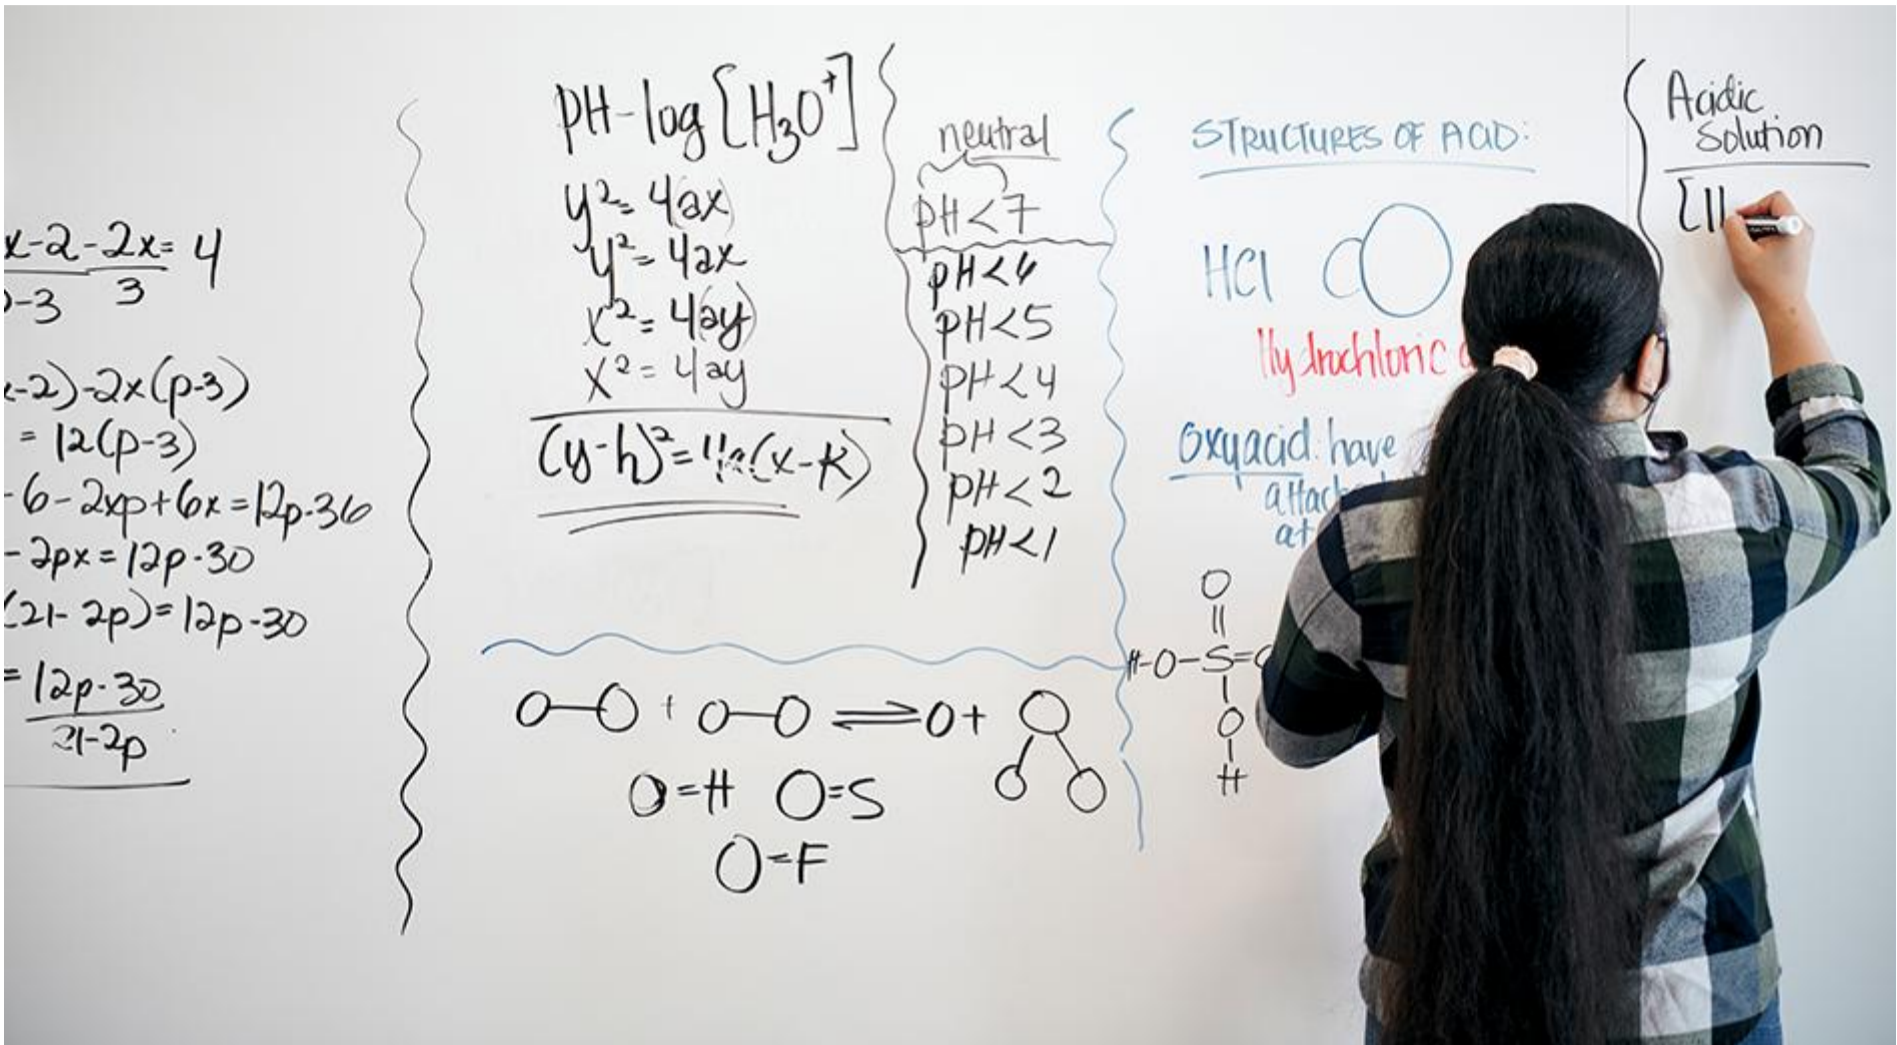 x-2 - 2x = 4
p-3 3
-2)-2x(p-3)
= 12(p-3)
-6-2xp+6x=12p-36
-2px=12p-30
(21-2p)=12p-30
= 12p-30
21-2p
pH-log[H₃O⁺]
y²=4(ax)
y²=4ax
x²=4(ay)
x²=4ay
(y-h)²=4a(x-k)
neutral
pH<7
pH<6
pH<5
pH<4
pH<3
pH<2
pH<1
O=H O=S
O=F
STRUCTURES OF ACID:
HCl
Hydrochloric
Oxyacid: have
H-O-S=
O
O
H
Acidic
Solution
[